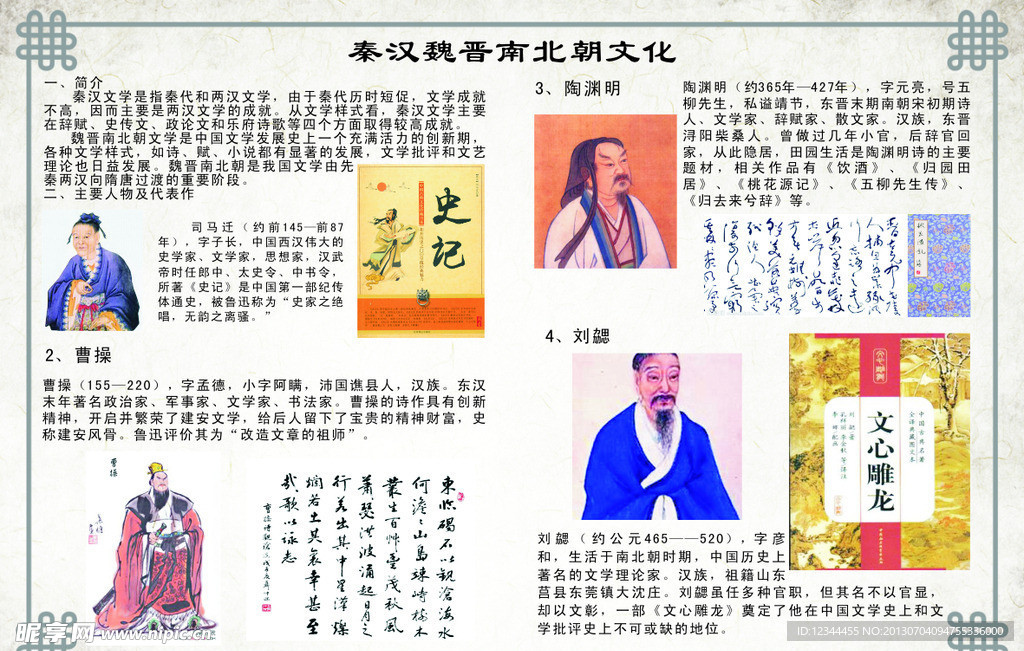 秦汉魏晋南北朝文化
一、简介
秦汉文学是指秦代和两汉文学，由于秦代历时短促，文学成就
不高，因而主要是两汉文学的成就。从文学样式看，秦汉文学主要
在辞赋、史传文、政论文和乐府诗歌等四个方面取得较高成就。
魏晋南北朝文学是中国文学发展史上一个充满活力的创新期，
各种文学样式，如诗、赋、小说都有显著的发展，文学批评和文艺
理论也日益发展。魏晋南北朝是我国文学由先
秦两汉向隋唐过渡的重要阶段。
二、主要人物及代表作
司马迁（约前145—前87
年），字子长，中国西汉伟大的
史学家、文学家，思想家，汉武
帝时任郎中、太史令、中书令，
所著《史记》是中国第一部纪传
体通史，被鲁迅称为“史家之绝
唱，无韵之离骚。”
史记
2、曹操
曹操（155—220），字孟德，小字阿瞒，沛国谯县人，汉族。东汉
末年著名政治家、军事家、文学家、书法家。曹操的诗作具有创新
精神，开启并繁荣了建安文学，给后人留下了宝贵的精神财富，史
称建安风骨。鲁迅评价其为“改造文章的祖师”。
曹操
東临碣石以观沧海水
何澹澹山島竦峙樹木
叢生百艸豐茂秋風
萧瑟洪波涌起日月之
行若出其中星漢燦
爛若出其裏幸甚至
哉歌以咏志
3、陶渊明
陶渊明（约365年—427年），字元亮，号五
柳先生，私谥靖节，东晋末期南朝宋初期诗
人、文学家、辞赋家、散文家。汉族，东晋
浔阳柴桑人。曾做过几年小官，后辞官回
家，从此隐居，田园生活是陶渊明诗的主要
题材，相关作品有《饮酒》、《归园田
居》、《桃花源记》、《五柳先生传》、
《归去来兮辞》等。
4、刘勰
文心雕龙
中国古典名著
全译典藏图文本
刘勰 著
刘勰（约公元465——520），字彦
和，生活于南北朝时期，中国历史上
著名的文学理论家。汉族，祖籍山东
莒县东莞镇大沈庄。刘勰虽任多种官职，但其名不以官显，
却以文彰，一部《文心雕龙》奠定了他在中国文学史上和文
学批评史上不可或缺的地位。
昵享网 www.nipic.cn
ID:12344455 NO:20130704094755336000